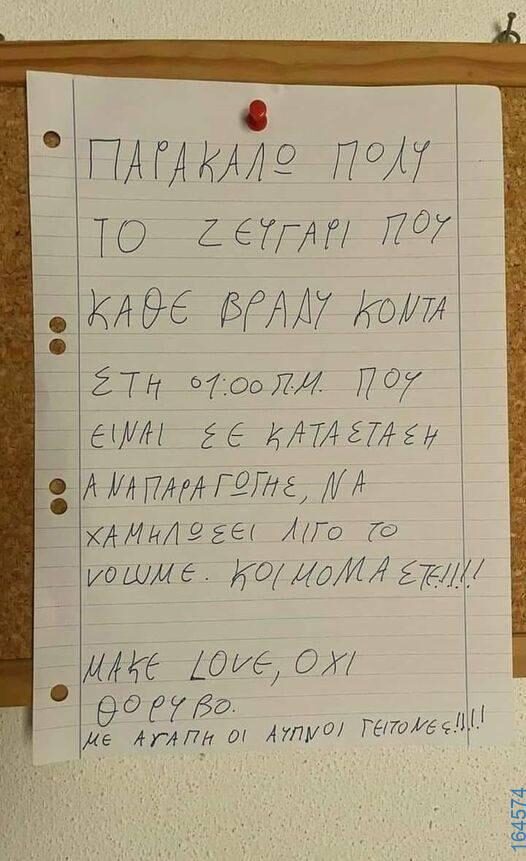 ΠΑΡΑΚΑΛΩ ΠΟΛΥ
ΤΟ ΖΕΥΓΑΡΙ ΠΟΥ
ΚΑΘΕ ΒΡΑΔΥ ΚΟΝΤΑ
ΣΤΗ 01:00 Π.Μ. ΠΟΥ
ΕΙΝΑΙ ΣΕ ΚΑΤΑΣΤΑΣΗ
ΑΝΑΠΑΡΑΓΩΓΗΣ, ΝΑ
ΧΑΜΗΛΩΣΕΙ ΛΙΓΟ ΤΟ
VOLUME. ΚΟΙΜΟΜΑΣΤΕ!!!!!
MAKE LOVE, ΟΧΙ
ΘΟΡΥΒΟ.
ΜΕ ΑΓΑΠΗ ΟΙ ΑΥΠΝΟΙ ΓΕΙΤΟΝΕΣ!!!!!
164574